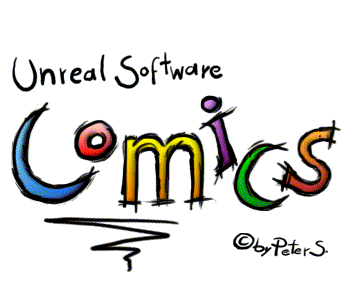 Unreal Software
Comics
©by Peter S.